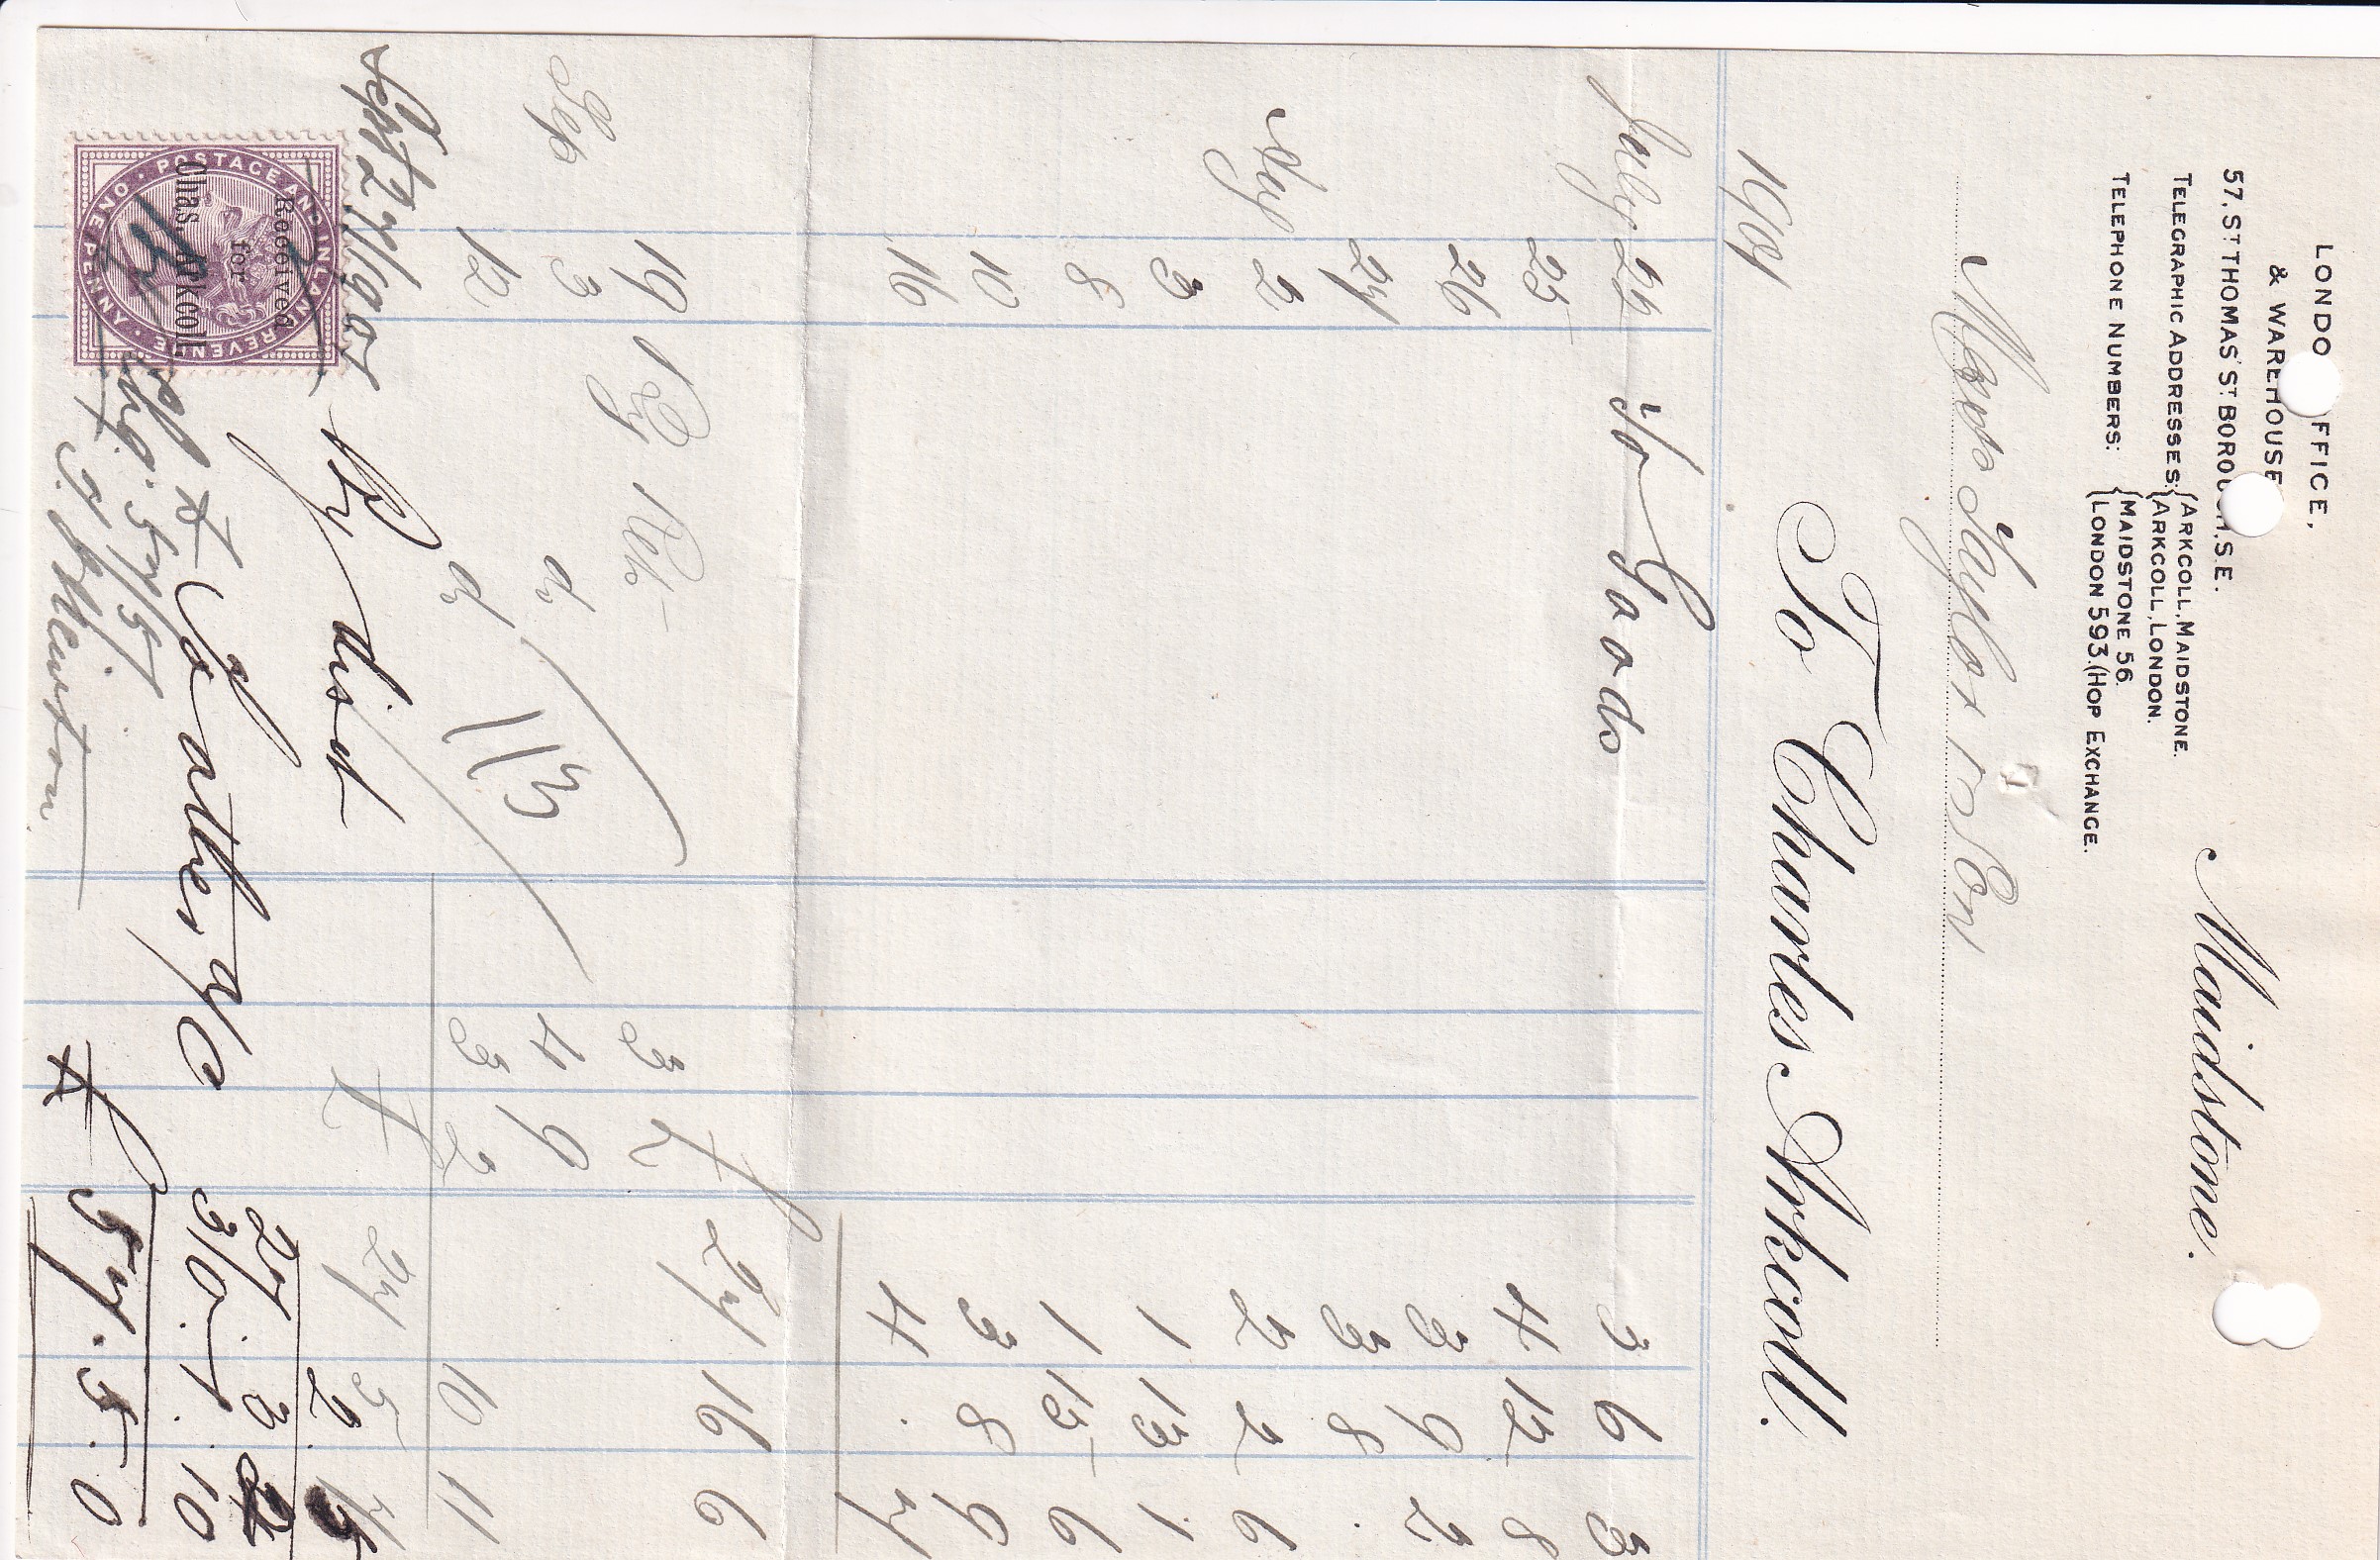 LONDO FFICE,
& WAREHOUSE
57, ST THOMAS' ST BORO H.S.E.
Maidstone.
TELEGRAPHIC ADDRESSES: {ARKCOLL, MAIDSTONE.
{ARKCOLL, LONDON.
TELEPHONE NUMBERS: {MAIDSTONE 56.
{LONDON 593.(HOP EXCHANGE.
Messrs Taylor & Son
To Charles Arkcoll.
1901
July 22 To Goods 3 6 3
25 4 12 8
26 3 9 2
27 3 8 .
Aug 2 2 2 6
3 1 13 1
8 1 15 6
10 3 8 9
16 4 . 7
£ 27 16 6
19 By Rets 3 2
Sep 3 do 4 9
12 do 3 2 10 11
£ 27 5 7
Sept 27/1901 By disct 2. 5
27. 3 2
Other a/c 30. 1. 10
£ 57. 5. 0
POSTAGE AND INLAND REVENUE
ONE PENNY
Received
for
Chas. Arkcoll
Chq. 57/5/.